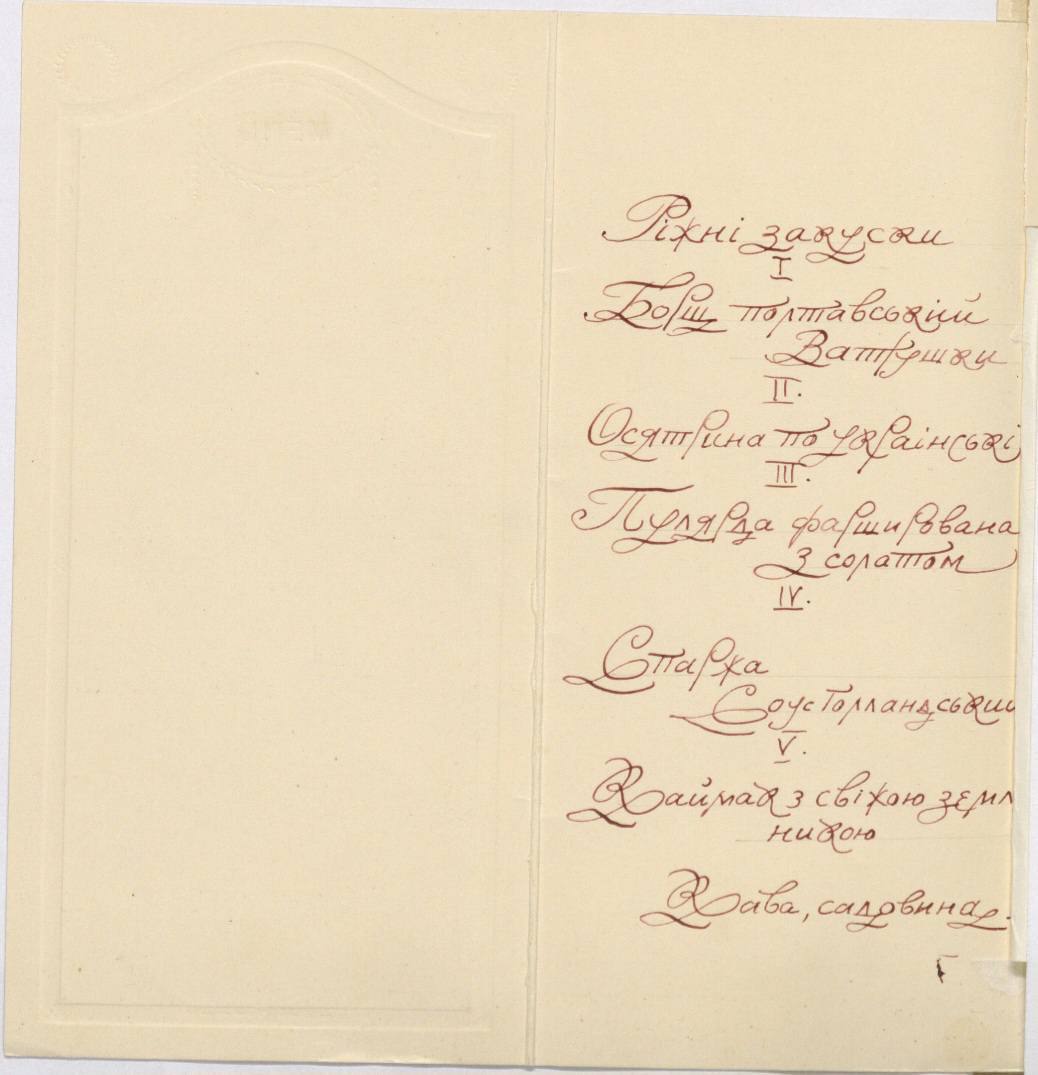 Ріжні закуски
I
Борщ полтавський
Ватрушки
II.
Осятрина по українські
III.
Пулярда фарширована
з солатом
IV.
Спаржа
Соус Голландський
V.
Каймак з свіжою земл
никою
Кава, садовина.